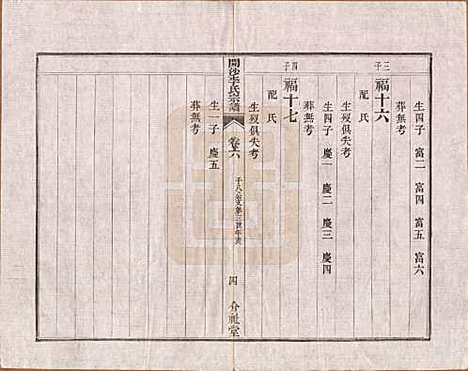 生四子 富二 富四 富五 富六
葬無考
三子
福十六
配氏
生歿俱失考
生四子 慶一 慶二 慶三 慶四
葬無考
四子
福十七
配氏
生歿俱失考
開沙李氏宗譜
卷六
四
介祉堂
生一子 慶五
葬無考